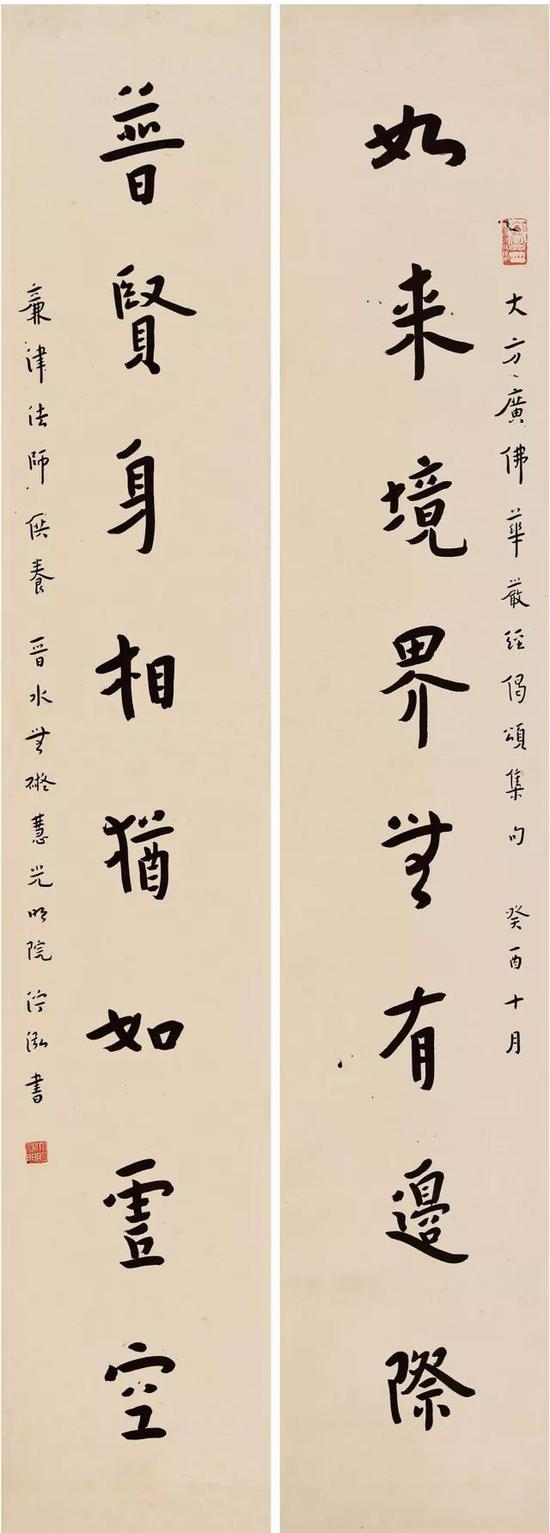 大方廣佛華嚴經偈頌集句 癸酉十月
如来境界無有邊際
普賢身相猶如虛空
廉津法師供養 晉水無礙慧光明院沙門書